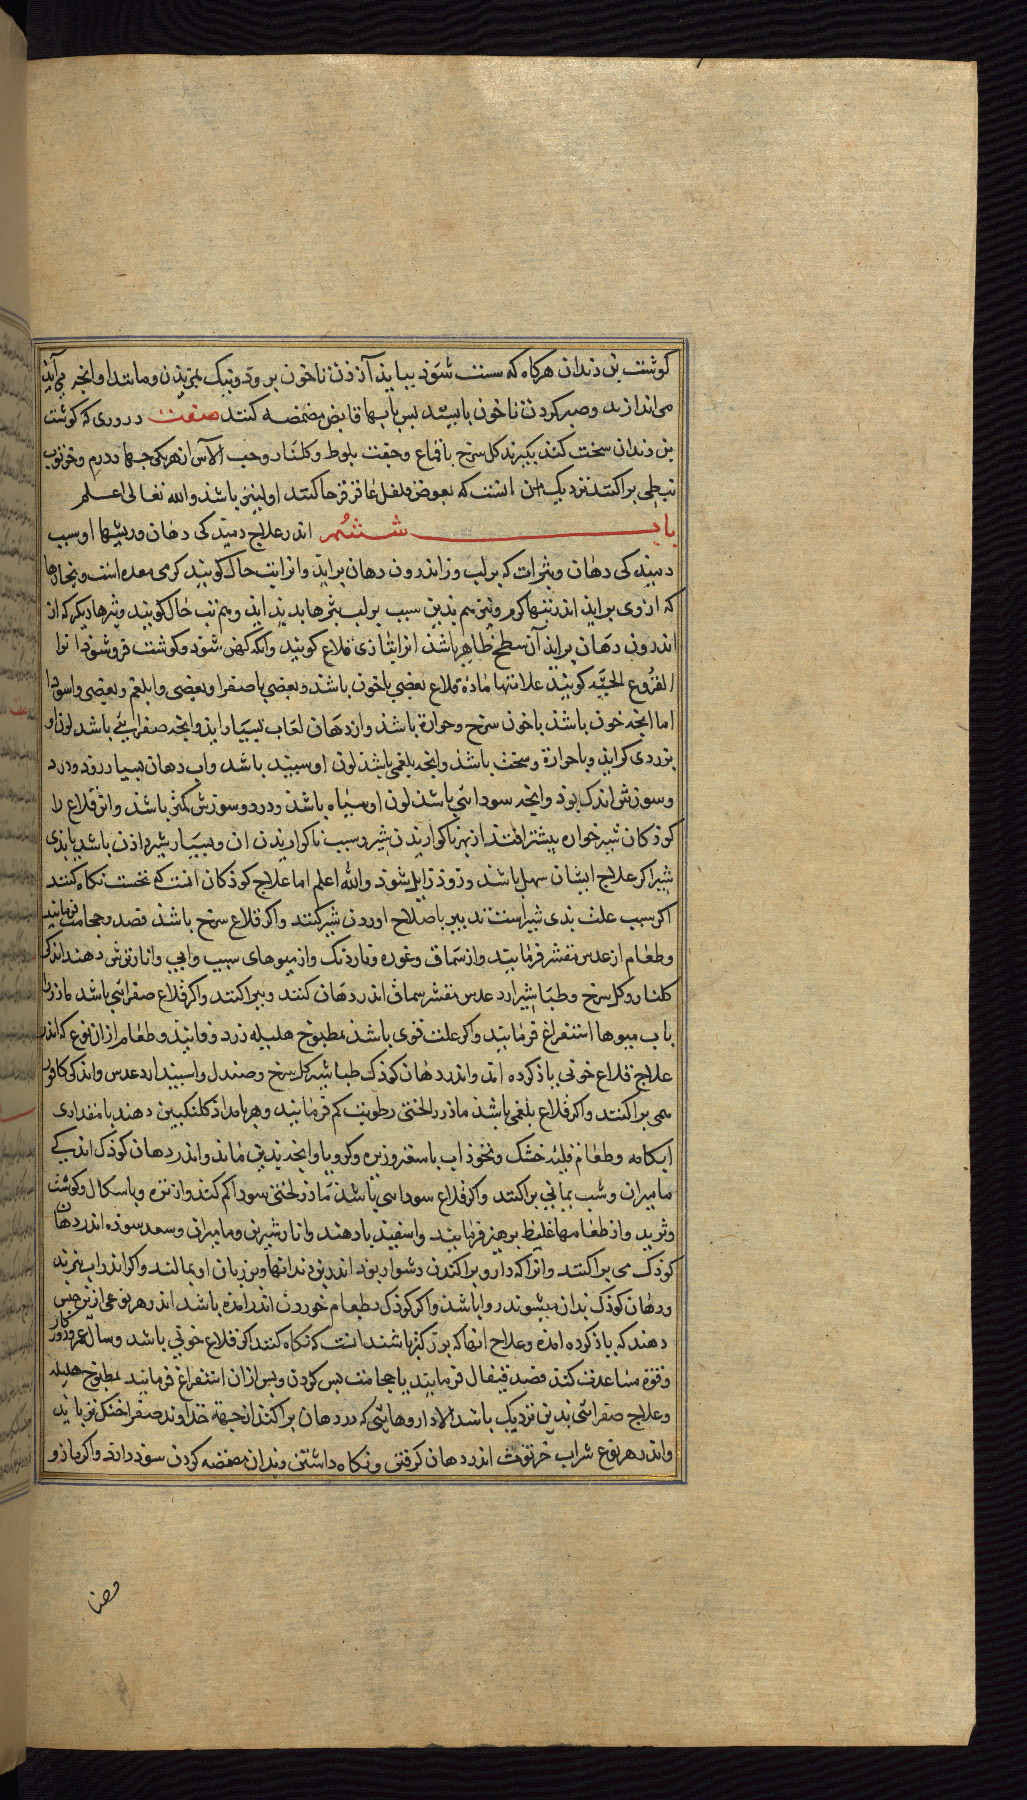 کوشت بن دندان هرکاه که سست شود بباید آزذن تا خون برود ونیک بمزیدن ومانند او انجه می آید
می اندازند وصبر کردن تا خون بایستد بس بابها قابض مضمضه کنند صفت دروری که کوشت
بن دندان سخت کند بکیرند کل سرخ باقماع وجفت بلوط وکلنار وحب الآس از هر یکی جهار درم وخرنوب
نبطی براکنند نزدیک من انست که بعوض فلفل عاقر قرحا کنند اولیتر باشد والله تعالی اعلم
باب ششم اندر علاج دمیدکی دهان وریشها او سبب
دمیدکی دهان وبثرات که بر لب وز اندرون دهان براید وانرا تب خاک کویند کرمی معده است وبخارها
که از وی براید اندر تبها کرم ونیز هم بدین سبب بر لب بثرها بدید اید وهم تب خال کویند وبثرها دیکر که از
اندرون دهان براید آن سطح ظاهر باشد انرا بتازی قلاع کویند وانکه کهن شود وکوشت فرو شود انرا
القروع الخبیثه کویند علامتها ماده قلاع بعضی با خون باشد وبعضی با صفرا وبعضی وا بلغم وبعضی وا سودا
اما انجه خون باشد با خون سرخ وحرارة باشد واز دهان لعاب بسیار اید وانجه صفرایی باشد لون او
بزردی کراید وبا حرارة وسخت باشد وانجه بلغمی باشد لون او سبید باشد واب دهان بسیار رود ودرد
وسوزش اندک بود وانجه سودائی باشد لون او سیاه باشد ودرد وسوزش کمتر باشد واین قلاع را
کودکان شیرخواره بیشتر افتد از بهر ناکواریدن شیر وسبب ناکواریدن ان وبسیار شیر دادن باشد یا بدی
شیر اکر علاج ایشان سهل باشد وزود زایل شود والله اعلم اما علاج کودکان انست که نخست نکاه کنند
اکر سبب علت بدی شیر است تدبیر باصلاح اوردن شیر کنند واکر قلاع سرخ باشد فصد وحجامت فرمایند
وطعام از عدس مقشر فرمایند واز سماق وغوره وناردنک واز میوهای سیب وابی وانار ترش دهند اندکی
کلنار وکل سرخ وطباشیر ارد عدس مقشر سماق اندر دهان کنند وببراکنند واکر قلاع صفرائی باشد مادر را
باب میوها استفراغ فرمایند واکر علت قوی باشد بمطبوخ هلیله زرد وفرمایند وطعام از ان نوع که اندر
علاج قلاع خونی یاد کرده اند واندر دهان کودک طباشیر کل سرخ وصندل واسبید ارد عدس واندکی کافور
همی براکنند واکر قلاع بلغمی باشد مادر را لختی رطوبت کم فرمایند وهر بامداد کلنکبین دهند با مقداری
ابکامه وطعام قلیه خشک ونخود اب با سعتر وزیره وکرویا وانجه بدین ماند واندر دهان کودک اندکی
مامیران وشب یمانی براکنند واکر قلاع سودایی باشد مادر را لختی سودا کم کنند واز تره وباسکال وکوشت
وثرید واز طعامها غلیظ برهیز فرمایند واسفید با دهند وانار شیرین ومامیران وسعد سوده اندر دهان
کودک می براکنند وانرا که دارو براکندن دشوار بود اندر بن دندانها وبن زبان او بمالند واکر اندر اب بنزند
ودهان کودک بدان میشویند روا باشد واکر کودک بطعام خوردن اندر امده باشد اندر هر نوعی ازین جنس
دهند که یاد کرده امده وعلاج انها که بزرکتر باشند انست که نکاه کنند اکر قلاع خونی باشد وسال عمر وروزکار
وقوة مساعدت کند فصد قیفال فرمایند یا حجامت بس کردن وبس از ان استفراغ فرمایند بمطبوخ هلیله
وعلاج صفرائی بدین نزدیک باشد الا داروهائی که در دهان براکنند از جهة خداوند صفرا خنک تر باید
واندر هر نوع شراب خرتوت اندر دهان کرفتن ونکاه داشتن وبدان مضمضه کردن سود دارد واکر مازو